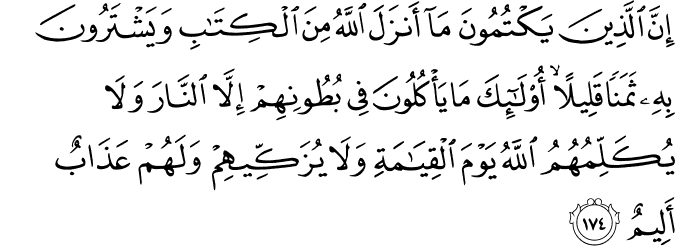 إِنَّ ٱلَّذِينَ يَكْتُمُونَ مَآ أَنزَلَ ٱللَّهُ مِنَ ٱلْكِتَـٰبِ وَيَشْتَرُونَ
بِهِۦ ثَمَنًا قَلِيلًا ۙ أُو۟لَـٰٓئِكَ مَا يَأْكُلُونَ فِى بُطُونِهِمْ إِلَّا ٱلنَّارَ وَلَا
يُكَلِّمُهُمُ ٱللَّهُ يَوْمَ ٱلْقِيَـٰمَةِ وَلَا يُزَكِّيهِمْ وَلَهُمْ عَذَابٌ
أَلِيمٌ ١٧٤